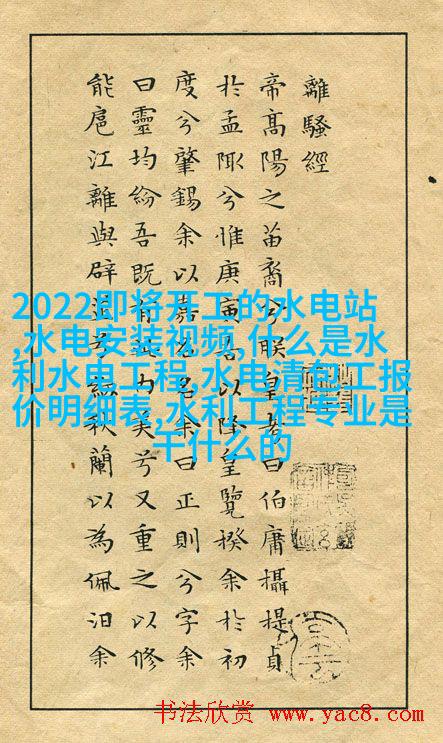 離騷經
帝高陽之苗裔兮朕皇考曰伯庸攝提貞
於孟陬兮惟庚寅吾以降皇覽揆余於初
度兮肇錫余以嘉名名余曰正則兮字余
曰靈均紛吾既有此內美兮又重之以修
能扈江離與辟芷兮紉秋蘭以為佩汨余
2022即将开工的水电站
,水电安装视频,什么是水
利水电工程,水电清包工报
价明细表,水利工程专业是
干什么的
书法欣赏 www.yac8.com